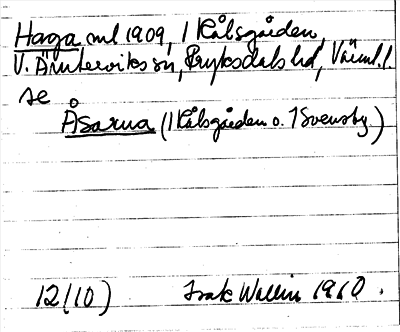 Haga ml 1909, 1 Kålsgården,
V. Ämterviks sn, Fryksdals hd, Värml. l.
se
Åsarna (1 Kålsgården o. 1 Svensby)
12(10) Wallin 1910.